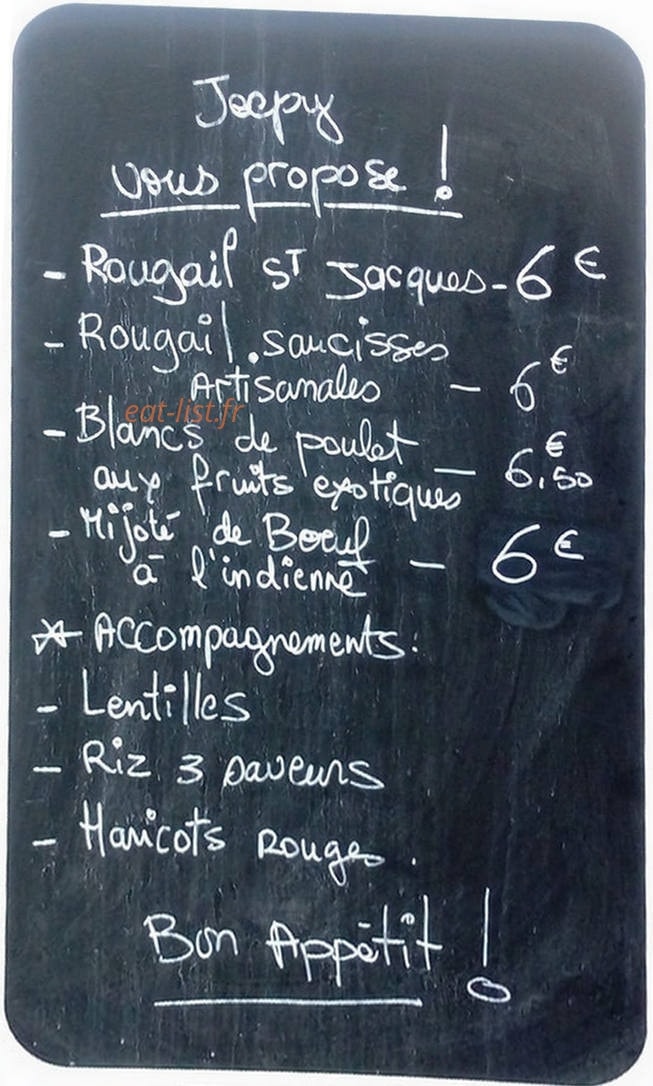 Jocpy
vous propose !
- Rougail St Jacques - 6 €
- Rougail . saucisses
Artisanales - 6 €
eat-list.fr
- Blancs de poulet
aux fruits exotiques - 6.50 €
- Mijoté de Boeuf
à l'indienne - 6 €
* Accompagnements :
- Lentilles
- Riz 3 saveurs
- Haricots Rouges .
Bon Appétit !